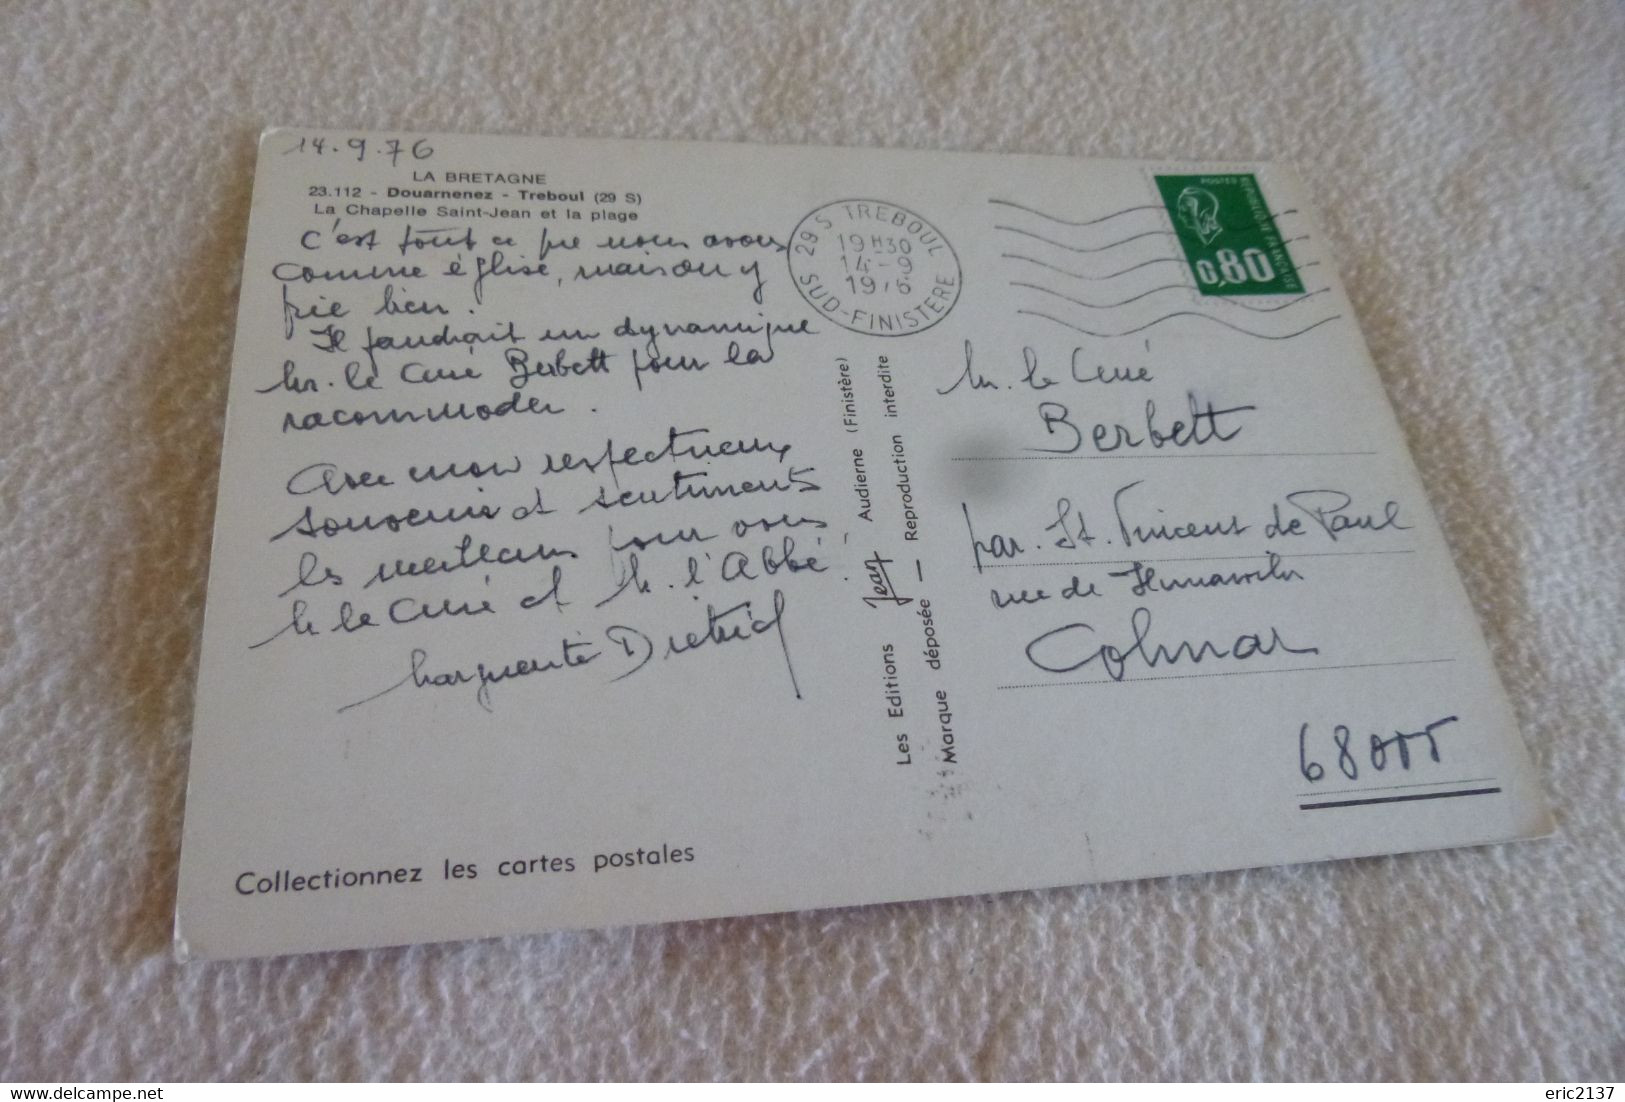 14.9.76
LA BRETAGNE
23.112 - Douarnenez - Treboul (29 S)
La Chapelle Saint-Jean et la plage
C'est tout ce que nous avons
comme église, mais on y
prie bien.
Il faudrait un dynamique
Mr. le Curé Berbett pour la
racommoder.
Avec mon respectueux
souvenir et sentiments
les meilleurs pour vous
M le Curé et M. l'Abbé.
Marguerite Dietrich
Collectionnez les cartes postales
Les Editions Jean Audierne (Finistère)
Marque déposée — Reproduction interdite
29 S TREBOUL
19H30
14-9
1976
SUD-FINISTERE
POSTES
REPUBLIQUE FRANCAISE
0,80
M. le Curé
Berbett
par. St. Vincent de Paul
rue de
Colmar
68000
Delcampe.net
eric2137